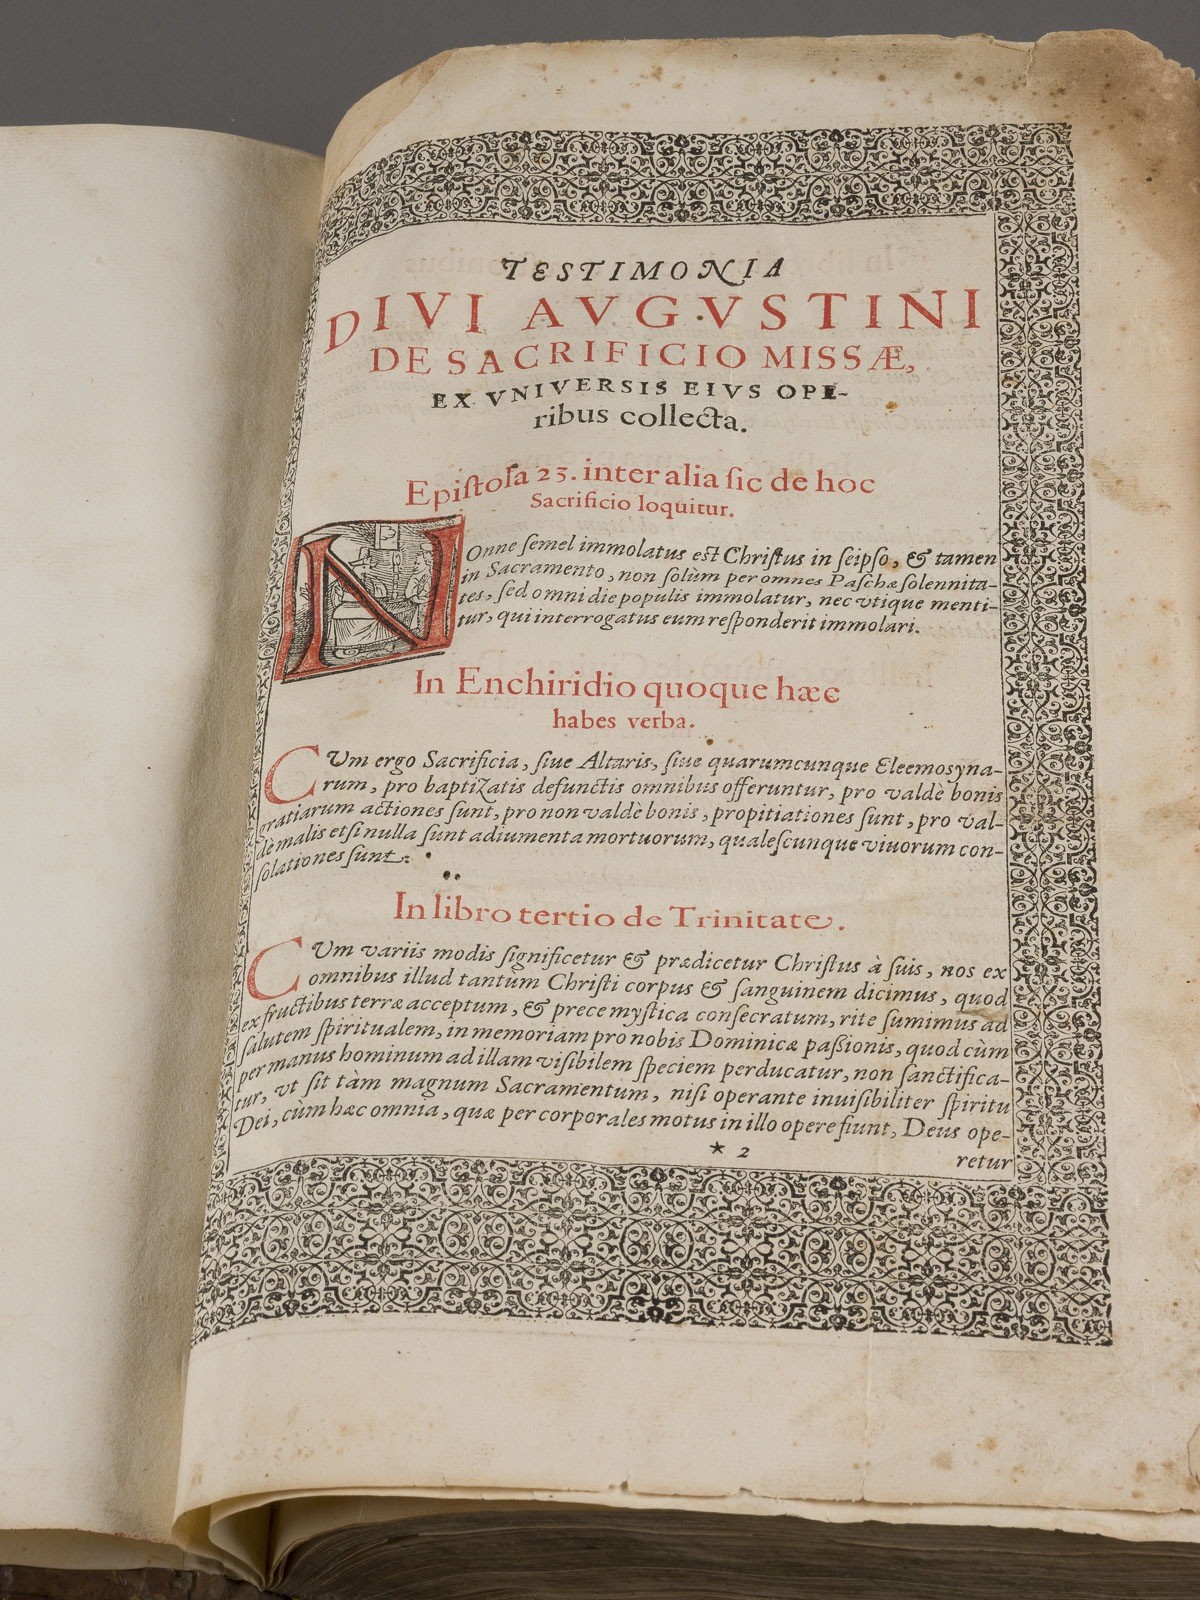 TESTIMONIA
DIVI AVGVSTINI
DE SACRIFICIO MISSÆ,
EX VNIVERSIS EIVS OPE-
ribus collecta.
Epiſtola 23. inter alia ſic de hoc
Sacrificio loquitur.
NOnne ſemel immolatus est Chriſtus in ſeipſo, & tamen
in Sacramento, non ſolùm per omnes Paſchæ ſolennita-
tes, ſed omni die populis immolatur, nec vtique menti-
tur, qui interrogatus eum reſponderit immolari.
In Enchiridio quoque hæc
habes verba.
CVm ergo Sacrificia, ſiue Altaris, ſiue quarumcunque Eleemosyna-
rum, pro baptizatis defunctis omnibus offeruntur, pro valdè bonis
gratiarum actiones ſunt, pro non valdè bonis, propitiationes ſunt, pro val-
dè malis etſi nulla ſunt adiumenta mortuorum, qualeſcunque viuorum con-
ſolationes ſunt.
In libro tertio de Trinitate.
CVm variis modis ſignificetur & prædicetur Chriſtus à ſuis, nos ex
omnibus illud tantùm Chriſti corpus & ſanguinem dicimus, quod
ex fructibus terræ acceptum, & prece myſtica conſecratum, rite ſumimus ad
ſalutem ſpiritualem, in memoriam pro nobis Dominicæ paßionis, quod cùm
per manus hominum ad illam viſibilem ſpeciem perducatur, non ſanctifica-
tur, vt ſit tàm magnum Sacramentum, niſi operante inuiſibiliter ſpiritu
Dei, cùm hæc omnia, quæ per corporales motus in illo opere fiunt, Deus ope-
★ 2 retur